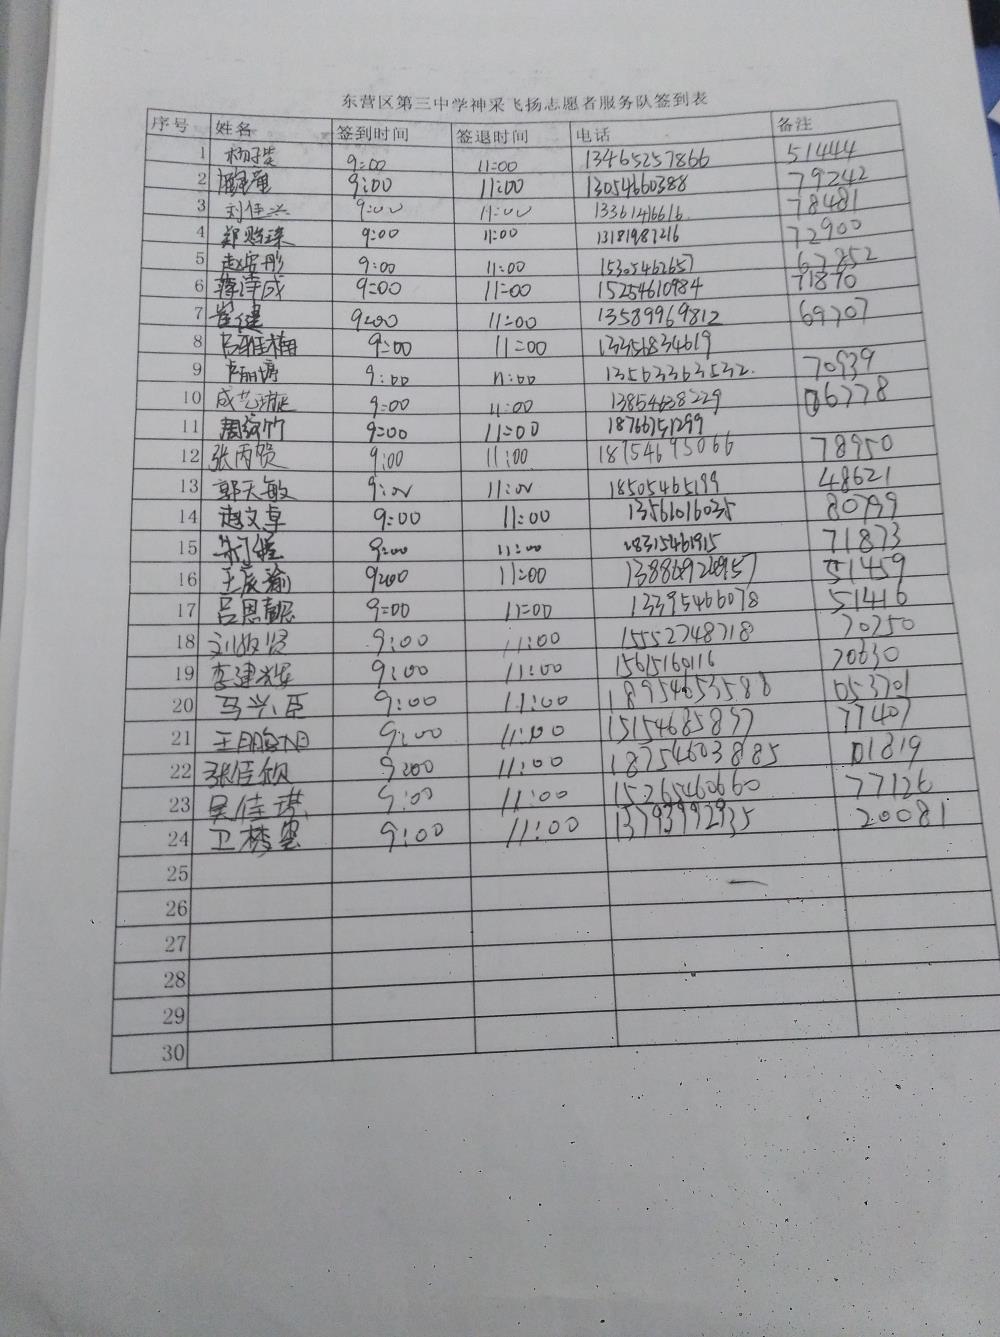 东营区第三中学神采飞扬志愿者服务队签到表
序号 姓名 签到时间 签退时间 电话 备注
1 9:00 11:00 13465257866 51444
2 9:00 11:00 13054660388 79242
3 刘佳兴 9:00 11:00 13361416616 78481
4 郑贻琛 9:00 11:00 13181987216 72900
5 9:00 11:00 15305462657 67252
6 9:00 11:00 15254610984 71870
7 崔健 9:00 11:00 13589969812 69707
8 9:00 11:00 13356834619
9 9:00 11:00 13563363532 70939
10 9:00 11:00 13854638229 06778
11 9:00 11:00 18766751299
12 张丙贺 9:00 11:00 18754695066 78950
13 郭天敏 9:00 11:00 18505465199 48621
14 赵文卓 9:00 11:00 13561016035 80799
15 9:00 11:00 18315461915 71873
16 王辰瀚 9:00 11:00 51459
17 9:00 11:00 13395466078 51416
18 9:00 11:00 15552748718 70250
19 李建辉 9:00 11:00 15615160116 70630
20 马兴臣 9:00 11:00 18954653588 053701
21 9:00 11:00 15154685897 77407
22 张佳欣 9:00 11:00 18754603885 01819
23 吴佳琪 9:00 11:00 15265460660 77126
24 卫梦 9:00 11:00 13793992935 20081
25
26
27
28
29
30